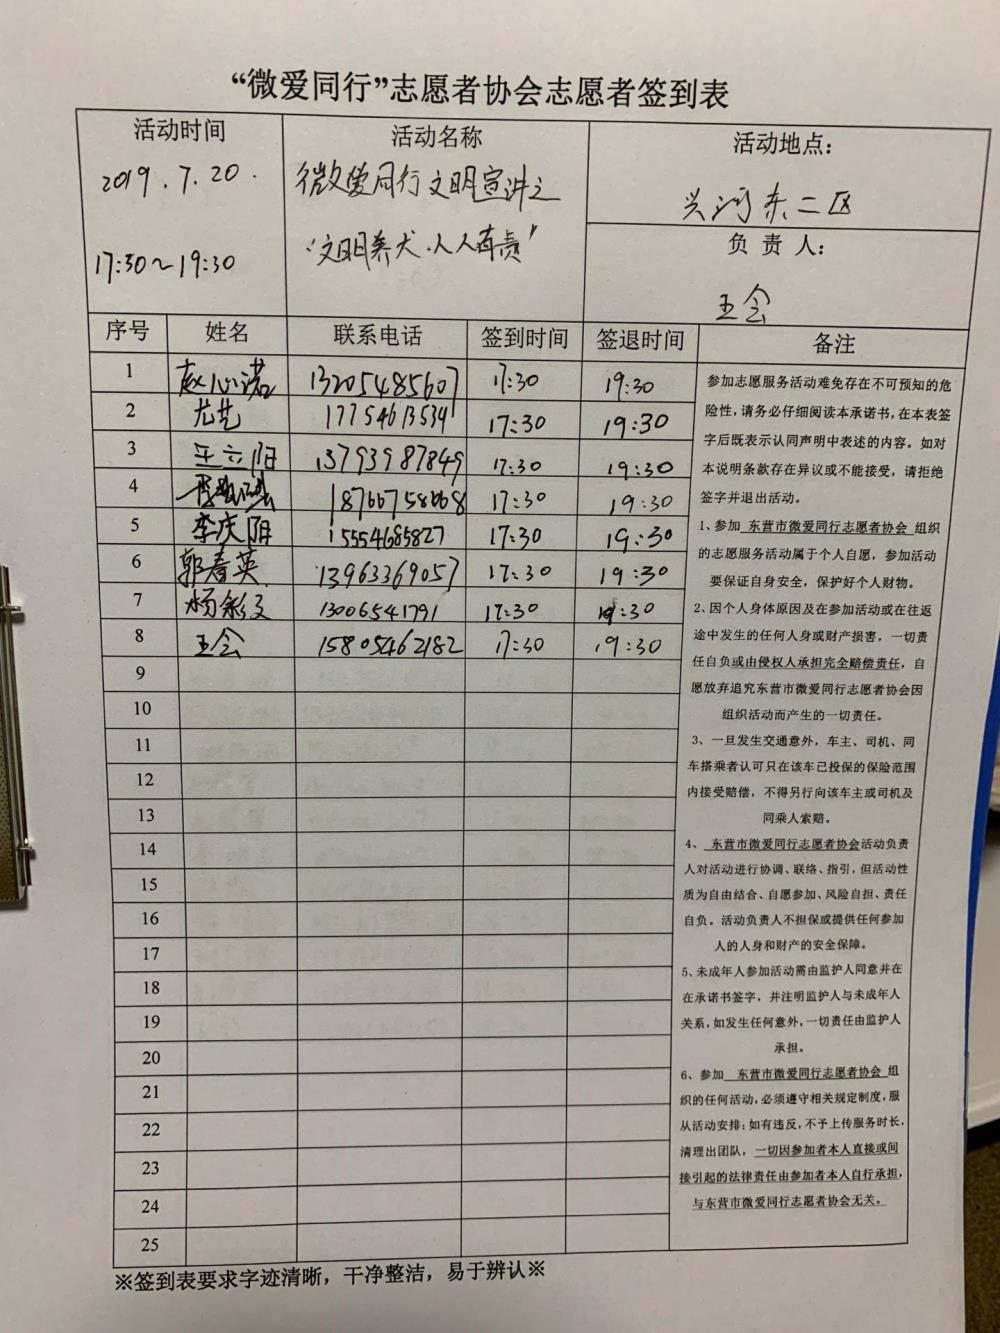 “微爱同行”志愿者协会志愿者签到表
活动时间
2019.7.20.
17:30~19:30
活动名称
微爱同行文明宣讲之
“文明养犬·人人有责”
活动地点：
兴河东二区
负责人：
王会
序号 姓名 联系电话 签到时间 签退时间 备注
1 赵心诺 13205485607 17:30 19:30
2 尤艺 17754613534 17:30 19:30
3 13793987849 17:30 19:30
4 18766758668 17:30 19:30
5 李庆阳 15554685827 17:30 19:30
6 郭春英 13963369057 17:30 19:30
7 杨彩文 13006541791 17:30 19:30
8 王会 15805462182 17:30 19:30
9
10
11
12
13
14
15
16
17
18
19
20
21
22
23
24
25
参加志愿服务活动难免存在不可预知的危
险性，请务必仔细阅读本承诺书，在本表签
字后既表示认同声明中表述的内容。如对
本说明条款存在异议或不能接受，请拒绝
签字并退出活动。
1、参加 东营市微爱同行志愿者协会 组织
的志愿服务活动属于个人自愿，参加活动
要保证自身安全，保护好个人财物。
2、因个人身体原因及在参加活动或在往返
途中发生的任何人身或财产损害，一切责
任自负或由侵权人承担完全赔偿责任，自
愿放弃追究东营市微爱同行志愿者协会因
组织活动而产生的一切责任。
3、一旦发生交通意外，车主、司机、同
车搭乘者认可只在该车已投保的保险范围
内接受赔偿，不得另行向该车主或司机及
同乘人索赔。
4、 东营市微爱同行志愿者协会活动负责
人对活动进行协调、联络、指引，但活动性
质为自由结合、自愿参加、风险自担、责任
自负。活动负责人不担保或提供任何参加
人的人身和财产的安全保障。
5、未成年人参加活动需由监护人同意并在
在承诺书签字，并注明监护人与未成年人
关系，如发生任何意外，一切责任由监护人
承担。
6、参加 东营市微爱同行志愿者协会 组
织的任何活动，必须遵守相关规定制度，服
从活动安排；如有违反，不予上传服务时长，
清理出团队，一切因参加者本人直接或间
接引起的法律责任由参加者本人自行承担，
与东营市微爱同行志愿者协会无关。
※签到表要求字迹清晰，干净整洁，易于辨认※